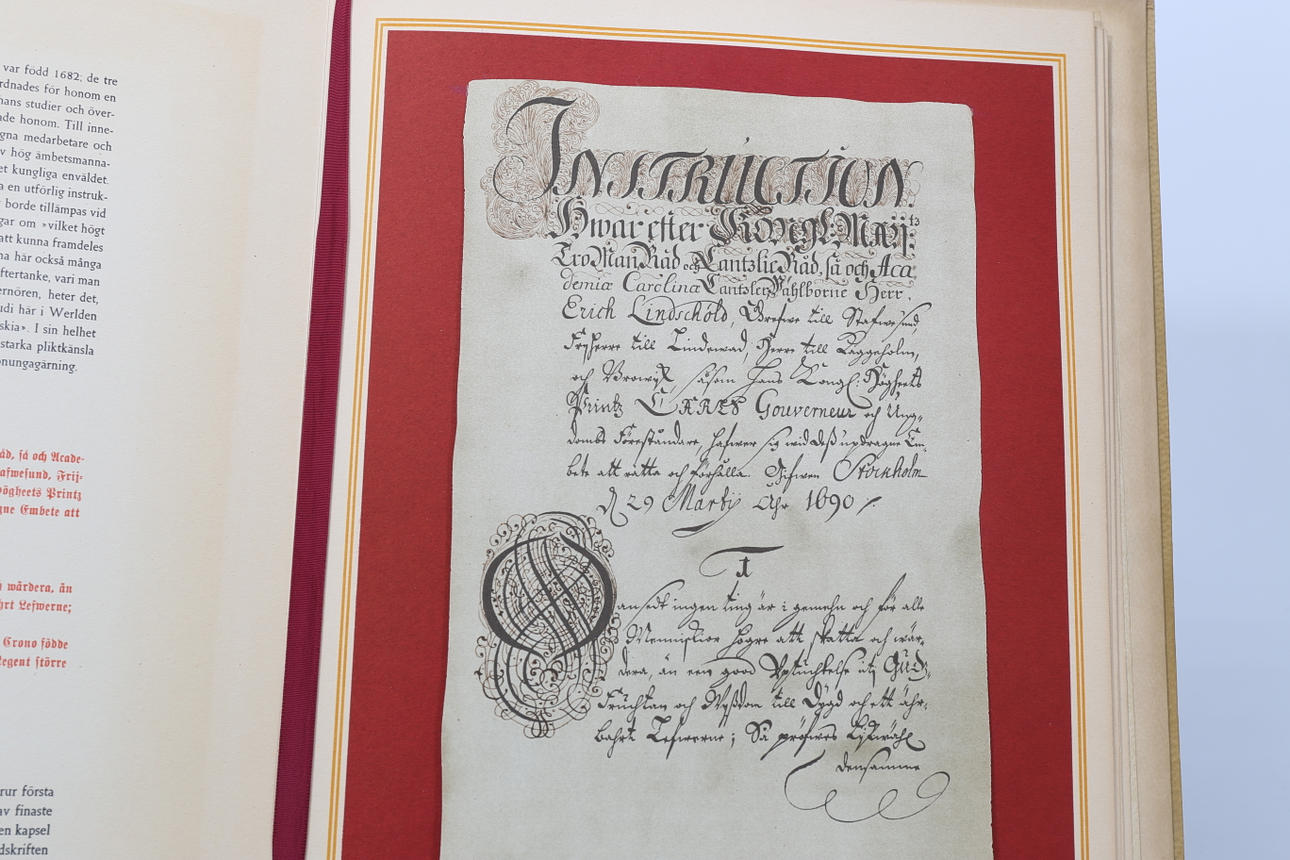 var född 1682; de tre
rdnades för honom en
hans studier och över-
ade honom. Till inne-
gna medarbetare och
v hög ämbetsmanna-
et kungliga enväldet.
a en utförlig instruk-
borde tillämpas vid
gar om »vilket högt
att kunna framdeles
na här också många
ftertanke, vari man
ernören, heter det,
udi här i Werlden
skia». I sin helhet
starka pliktkänsla
onungagärning.
åd, så och Acade-
afwesund, Frij-
ögheets Printz
gne Embete att
wärdera, än
hrt Lefwerne;
Crono födde
Regent större
rur första
av finaste
en kapsel
dskriften
INSTRUCTION.
Hwar efter Kongl: Maij:tz
Tro Man Råd och Cantzlie Råd, så och Aca
demiæ Carolinæ Cantzler, Wählborne Herr.
Erich Lindschöld, Grefwe till Stafwesund,
Frijherre till Lindewad, Herre till Laggeholm,
och Browijk, såsom Hans Kongl: Högheets
Printz CARLS Gouverneur och Ung-
doms Föreståndare, hafwer sig wid deß updragne Em-
bete att rätta och förhålla. Gifwen Stockholm
d 29 Martij Åhr 1690 /.
1
Oansedt ingen ting är i gemehn och för alle
Menniskior högre att skatta och wär-
dera, än een good Vptuchtelse uti Gudz
Fruchtan och Wyßdom till Dygd och ett ähr-
bahrt Lefwerne; Så pröfwes lijkwähl
densamme